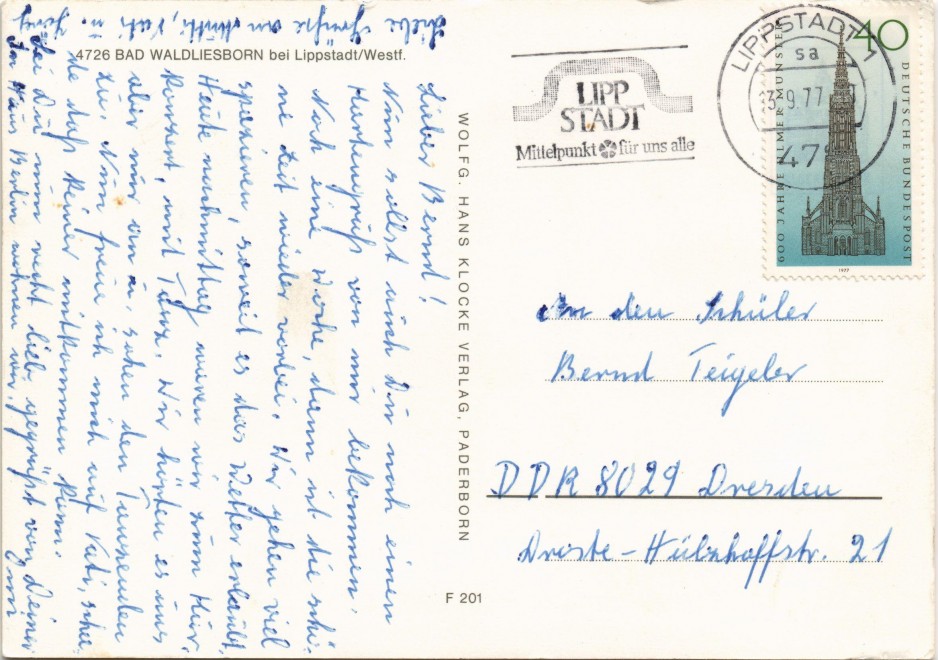 4726 BAD WALDLIESBORN bei Lippstadt/Westf.
Lieber Bernd!
Nun sollst auch Du noch einen
Kurkengruß von mir bekommen.
Noch eine Woche, dann ist die schö-
ne Zeit wieder vorbei. Wir gehen viel
spazieren, soweit es das Wetter erlaubt.
Heute nachmittag waren wir zum Kur-
konzert, mit Tanz. Wir hörten es uns
aber nur an u. sahen den Tanzenden
zu. Nun freue ich mich auf Vati, scha-
de daß keiner mitkommen kann.
Sei Du nun recht lieb gegrüßt von Deiner
In Berlin wohnen wir
Liebe Grüße an Mutti, Vati u.
WOLFG. HANS KLOCKE VERLAG, PADERBORN
F 201
LIPP
STADT
Mittelpunkt für uns alle
LIPPSTADT 1
sa
-3.-9.77
478
40
600 JAHRE ULMER MÜNSTER
DEUTSCHE BUNDESPOST
1977
An den Schüler
Bernd Teigeler
DDR 8029 Dresden
Droste-Hülshoffstr. 21